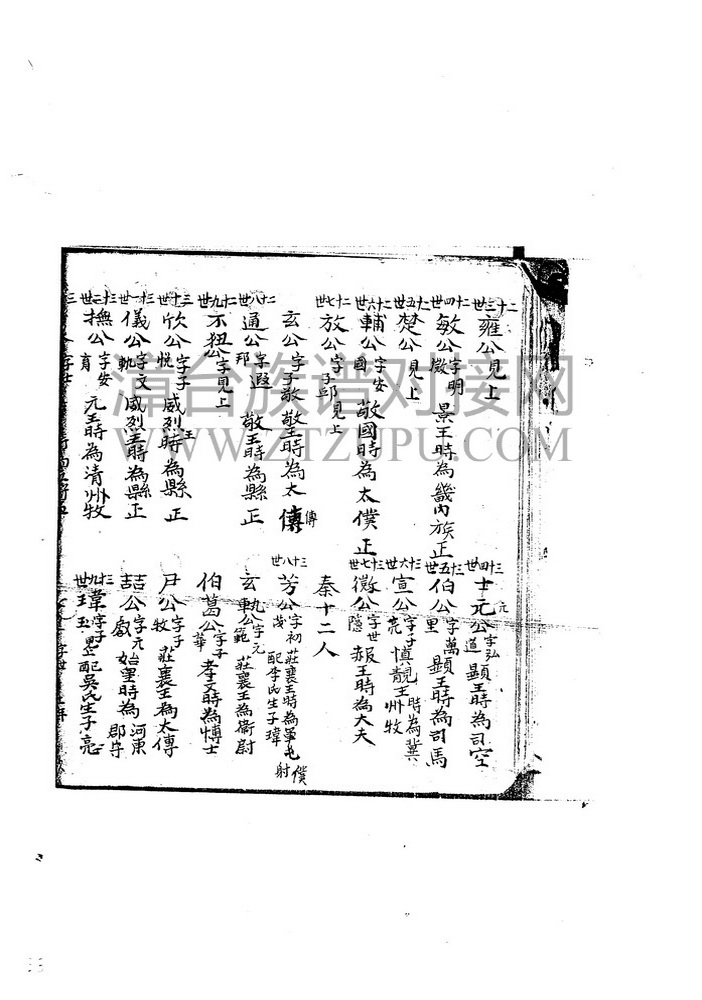 二十三世 雍公見上
二十四世 敏公字明徵 景王時為畿內族正
二十五世 楚公見上
二十六世 輔公字安國 敬國時為太僕正
二十七世 放公字子邱見上
玄公字子敬 敬王時為太傅 傅
二十八世 通公字遐邦 敬王時為縣正
二十九世 不狃公字見上
三十世 欣公字子悅 威烈王時為縣正
三十一世 儀公字文軌 威烈王時為縣正
三十二世 撫公字安育 元王時為清州牧
三十四世 士元公字弘道 顯王時為司空
三十五世 伯公字萬里 顯王時為司馬
三十六世 宣公字子亮 慎靚王時為冀州牧
三十七世 徵公字世隱 赧王時為大夫
秦十二人
三十八世 芳公字初茂 莊襄王時為軍屯僕射 配李氏生子瑋
玄軌公字元範 莊襄王為衛尉
伯葛公字子華 孝文時為博士
尸公字子牧 莊襄王為太傅
喆公字元獻 始皇時為河東郡守
三十九世 瑋字子玉 配吳氏生子亮
漳台族谱对接网
WWW.ZTZUPU.COM